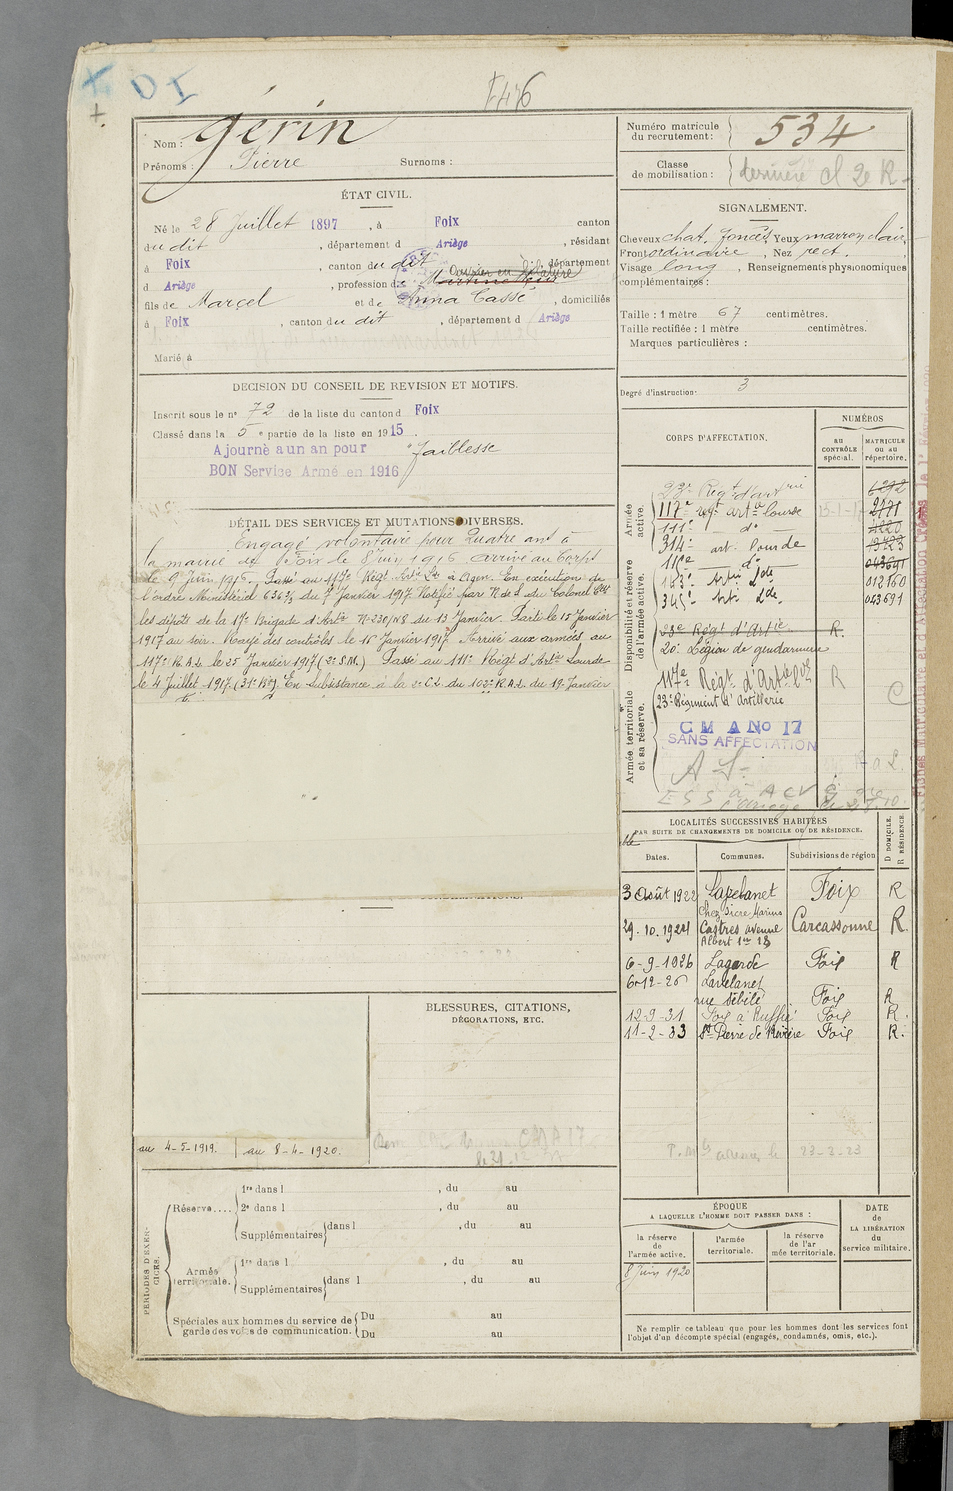 D I
+
Gérin
Nom :
Prénoms : Pierre Surnoms :
ÉTAT CIVIL.
Né le 28 Juillet 1897, à Foix canton
du dit, département d Ariège, résidant
à Foix, canton du dit département
d Ariège, profession de Ouvrier en filature
fils de Marcel et de Anna Casse, domiciliés
à Foix, canton du dit, département d Ariège
Marié à
DECISION DU CONSEIL DE REVISION ET MOTIFS.
Inscrit sous le n° 72 de la liste du canton d Foix
Classé dans la 5e partie de la liste en 1915.
Ajourné a un an pour "faiblesse
BON Service Armé en 1916
DÉTAIL DES SERVICES ET MUTATIONS DIVERSES.
Engagé volontaire pour Quatre ans à
la mairie de Foix le 8 Juin 1916 arrivé au Corps
le 9 Juin 1916. Passé au 117e Régt Artie Lde à Agen. En exécution de
l'ordre Ministériel 636 2/3 du 7 Janvier 1917 Notifié par N de S du Colonel Ct
les dépôts de la 17e Brigade d'Artie N-230/NS du 13 Janvier. Parti le 15 Janvier
1917 au soir. Rayé des contrôles le 16 Janvier 1917 Arrivé aux armées au
117e R.A.L. le 25 Janvier 1917 (2e S.M.) Passé au 111e Régt d'Artie Lourde
le 4 Juillet 1917. (31e Bie). En Subsistance à la 2e C.L. du 102e R.A.L. du 19 Janvier
BLESSURES, CITATIONS,
DÉCORATIONS, ETC.
au 4-5-1919. au 8-4-1920.
PÉRIODES D'EXERCICES.
Réserve.... 1re dans l , du au
2e dans l , du au
Supplémentaires dans l , du au
Armée territoriale. 1re dans l , du au
Supplémentaires dans l , du au
Spéciales aux hommes du service de garde des voies de communication. Du au
Du au
Numéro matricule
du recrutement : 534
Classe
de mobilisation : dernière cl 2e R
SIGNALEMENT.
Cheveux chat. foncés, Yeux marron clair,
Front ordinaire, Nez rect.
Visage long, Renseignements physionomiques
complémentaires :
Taille : 1 mètre 67 centimètres.
Taille rectifiée : 1 mètre centimètres.
Marques particulières :
Degré d'instruction : 3
CORPS D'AFFECTATION.
NUMÉROS
AU CONTRÔLE spécial.
MATRICULE OU AU répertoire.
Armée active.
23e Régt d'artrie 6292
117e regt artie lourde 15-1-17 2471
111e do 4220
314e art. lourde 13723
Disponibilité et réserve de l'armée active.
118e do 043641
183e Artie Lde 012160
345e Artie Lde 043691
23e Régt d'Artie R.
20e Légion de gendarmerie
Armée territoriale et sa réserve.
117e Régt d'Artie Lde R
23e Régiment d'Artillerie C
C M A No 17
SANS AFFECTATION
LOCALITÉS SUCCESSIVES HABITÉES
PAR SUITE DE CHANGEMENTS DE DOMICILE OU DE RÉSIDENCE.
Dates. Communes. Subdivisions de région D DOMICILE. R RÉSIDENCE.
3 Août 1922 Lavelanet Foix R
Chez Sicre Marius
29.10.1924 Castres avenue Carcassonne R.
Albert 1er 13
6-9-1926 Lagarde Foix R
6-12-26 Lavelanet
rue débile Foix R
12-9-31 Foix à Ruffié Foix R.
11-2-33 St Pierre de Rivière Foix R.
23-3-23
ÉPOQUE
A LAQUELLE L'HOMME DOIT PASSER DANS :
la réserve de l'armée active.
l'armée territoriale.
la réserve de l'armée territoriale.
DATE de LA LIBÉRATION du service militaire.
8 Juin 1920
Ne remplir ce tableau que pour les hommes dont les services font
l'objet d'un décompte spécial (engagés, condamnés, omis, etc.).